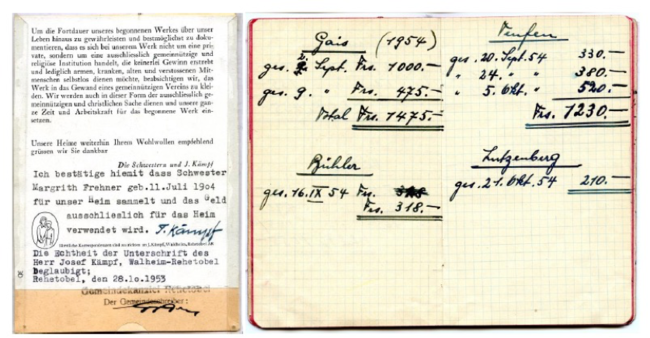 Um die Fortdauer unseres begonnenen Werkes über unser
Leben hinaus zu gewährleisten und bestmöglichst zu doku-
mentieren, dass es sich bei unserem Werk nicht um eine pri-
vate, sondern um eine ausschliesslich gemeinnützige und
religiöse Institution handelt, die keinerlei Gewinn erstrebt
und lediglich armen, kranken, alten und verstossenen Mit-
menschen selbstlos dienen möchte, beabsichtigen wir, das
Werk in das Gewand eines gemeinnützigen Vereins zu klei-
den. Wir werden auch in dieser Form der ausschliesslich ge-
meinnützigen und christlichen Sache dienen und unsere gan-
ze Zeit und Arbeitskraft für das begonnene Werk ein-
setzen.
Unsere Heime weiterhin Ihrem Wohlwollen empfehlend
grüssen wir Sie dankbar
Die Schwestern und J. Kämpf
Ich bestätige hiemit dass Schwester
Margrith Frehner geb.11.Juli 1904
für unser Heim sammelt und das Geld
ausschliesslich für das Heim
verwendet wird. J. Kämpf
Die Echtheit der Unterschrift des
Herr Josef Kämpf, Walheim-Rehetobel
Beglaubigt;
Rehetobel, den 28.10.1953
Gemeindekanzlei Rehetobel
Der Gemeindeschreiber:
Gais (1954)
ges. 2. Sept. Frs. 1000.—
ges. 9. " Frs. 475.—
Total Frs. 1475.—
Bühler
ges. 16. IX 54 Frs.
Frs. 318.—
Teufen
ges. 20. Sept. 54 330.—
" 24. " " 380.—
" 5. Okt. " 520.—
Frs. 1230.—
Lutzenberg
ges. 21. Okt. 54 210.—